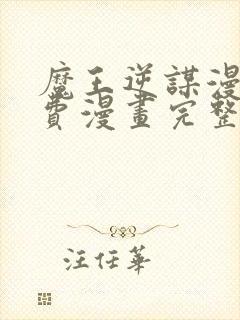 魔王逆謀漫
費漫畫完整
汪任華